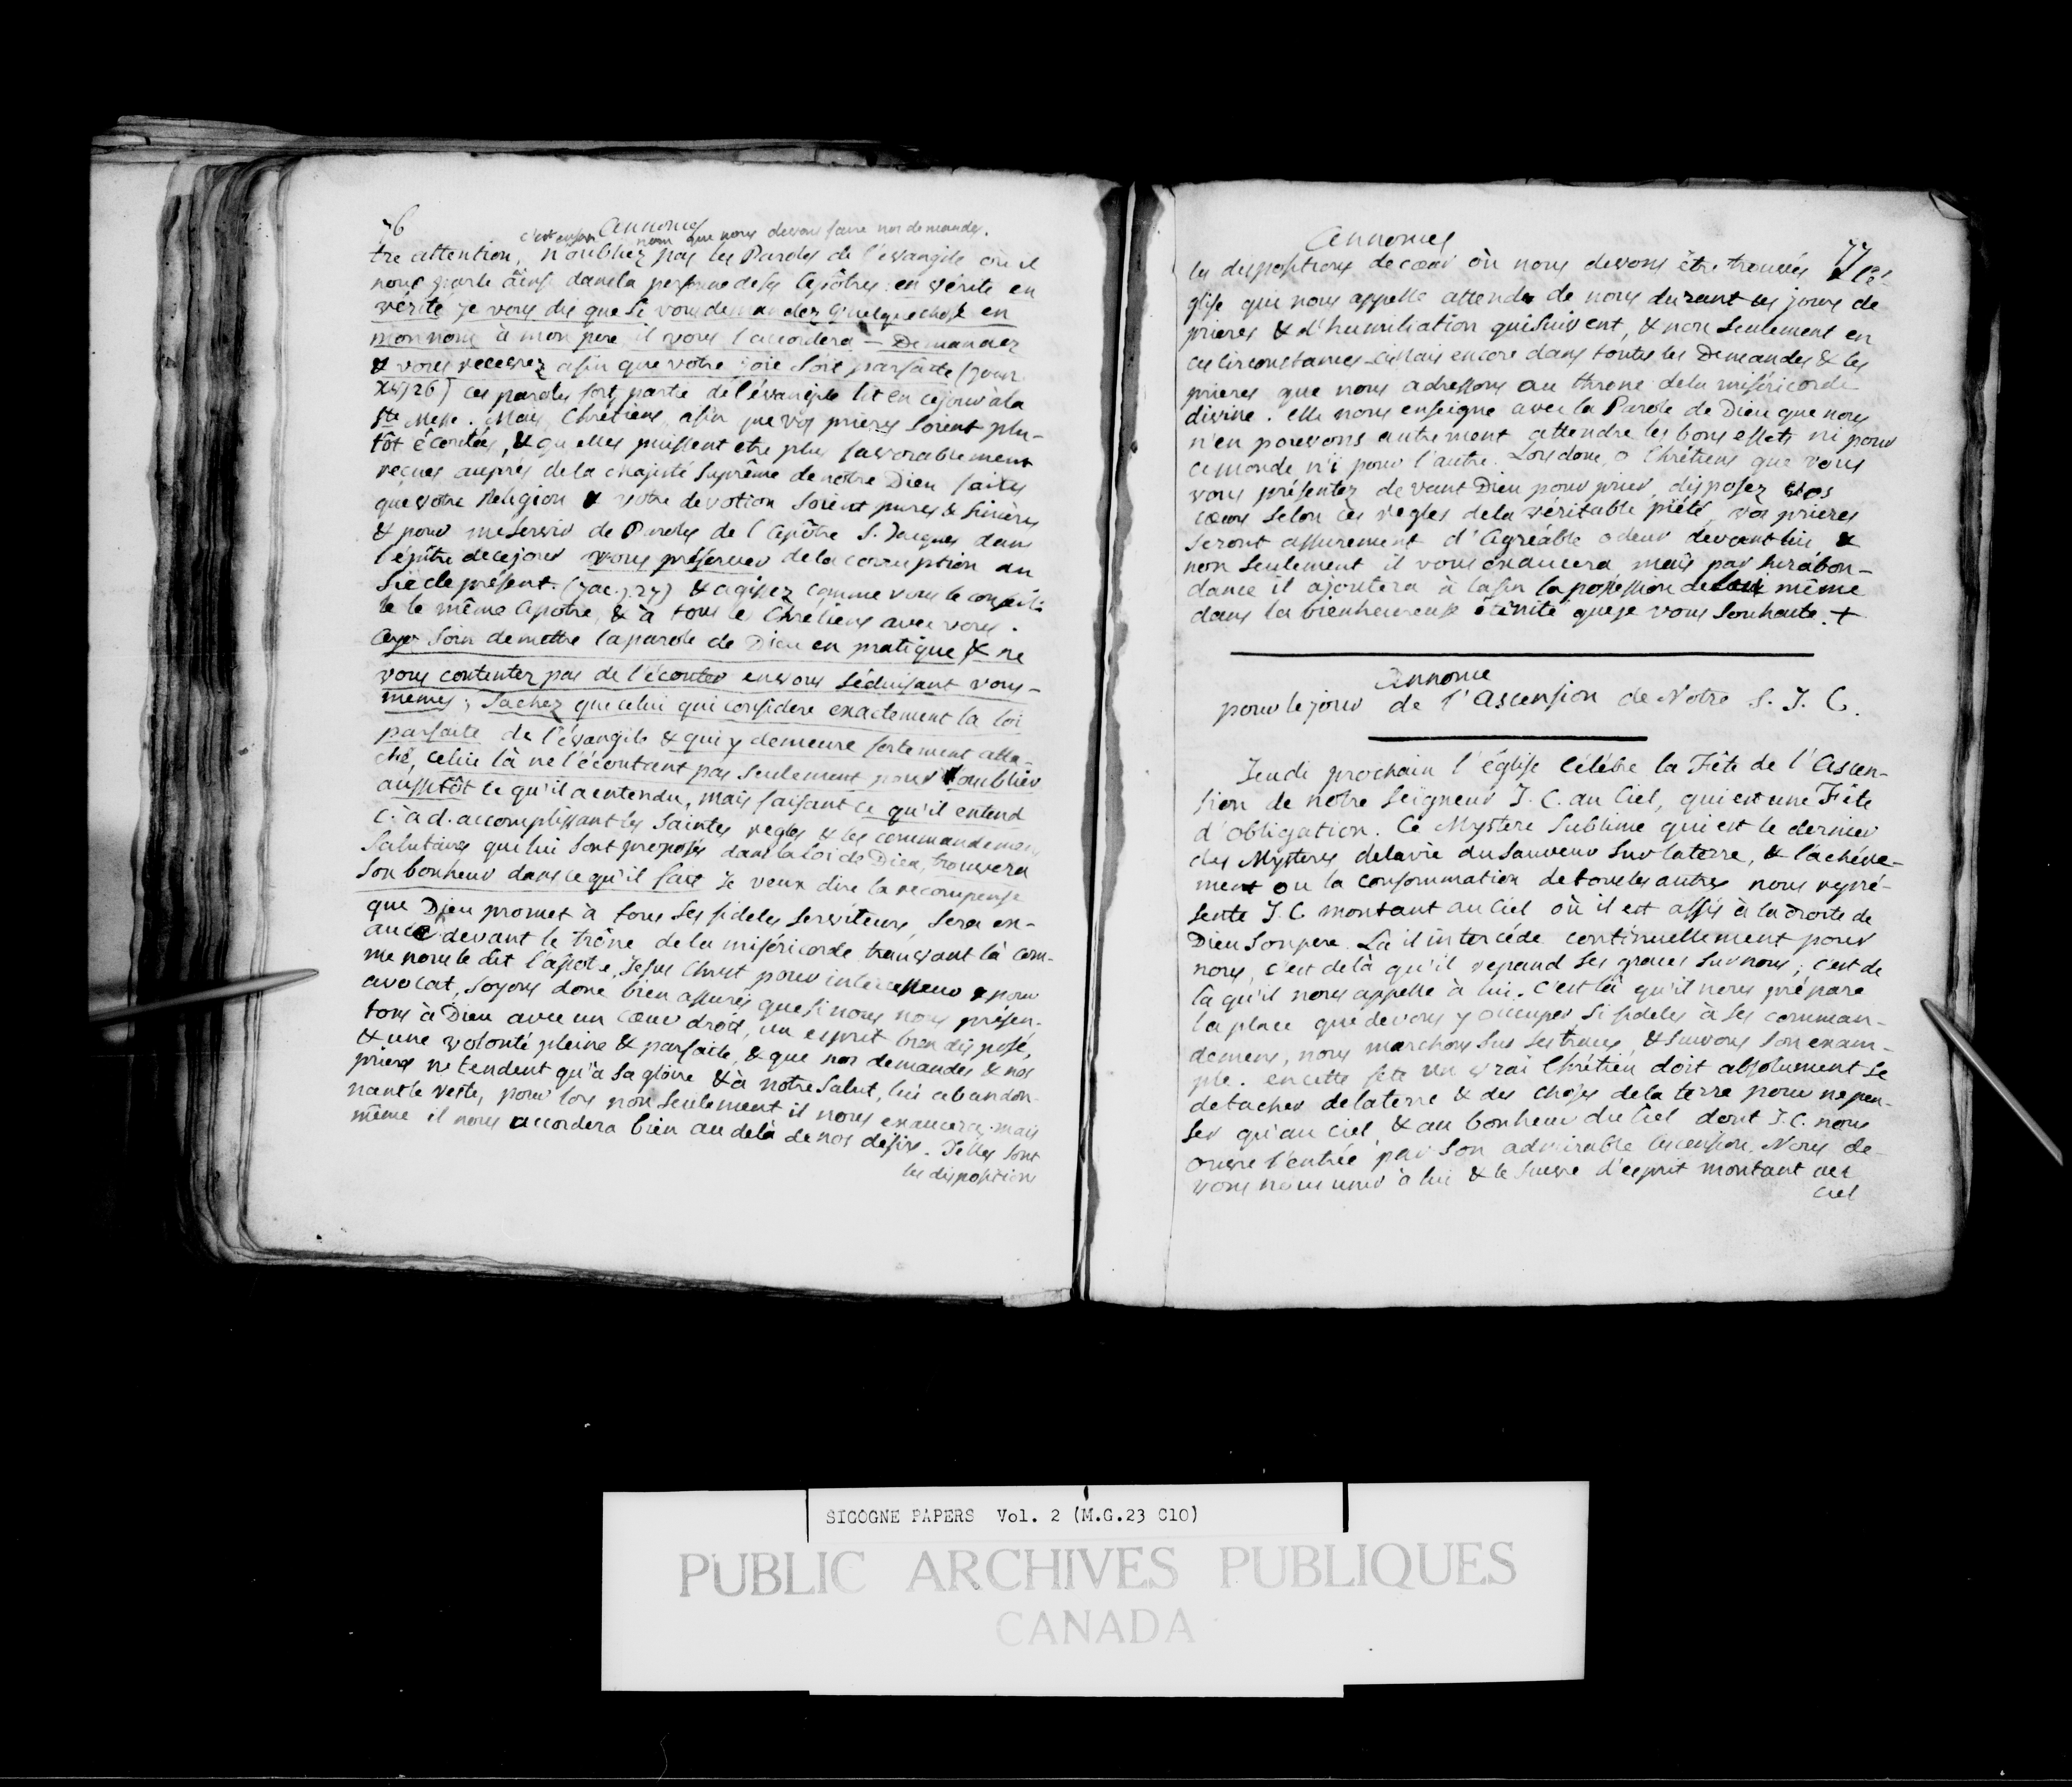 76
Annonces
c'est en son nom que nous devons faire nos demandes.
tre attention, n'oubliez pas les Paroles de l'évangile où il
nous parle ainsi dans la personne de ses Apôtres: en vérité en
vérité je vous dis que si vous demandez quelque chose en
mon nom à mon pere il vous l'accordera — Demandez
& vous recevrez afin que votre joie soit parfaite (joan
XVI) 26) ces paroles font partie de l'évangile lit en ce jour à la
Ste Messe. Mais, Chrétiens, afin que vos prieres soient plu-
tôt écoutées, & qu'elles puissent etre plus favorablement
reçues auprès de la Majesté Suprême de notre Dieu faites
que votre Religion & votre devotion soient pures & sincères
& pour me servir de Paroles de l'Apôtre S. Jacques dans
l'épître de ce jour vous préserver de la corruption du
siècle présent. (Jac. j. 27) & agissez comme vous le conseil-
le le même Apotre, & à tous les Chrétiens avec vous.
Ayez soin de mettre la parole de Dieu en pratique & ne
vous contentez pas de l'écouter en vous séduisant vous-
memes; Sachez que celui qui considere exactement la loi
parfaite de l'évangile & qui y demeure fortement atta-
ché, celui là ne l'écoutant pas seulement pour oublier
aussitôt ce qu'il a entendu, mais faisant ce qu'il entend
C. à d. accomplissant les Saintes regles & les commandemens
Salutaires qui lui sont proposés dans la loi de Dieu, trouvera
son bonheur dans ce qu'il fait je veux dire la recompense
que Dieu promet à tous ses fideles serviteurs, sera en-
aucé devant le trône de la miséricorde, trouvant là com-
me nous le dit l'apotre, Jesus Christ pour intercesseur & pour
avocat, soyons donc bien assurés que si nous nous présen-
tons à Dieu avec un cœur droit, un esprit bien disposé,
& une volonté pleine & parfaite, & que nos demandes & nos
prieres ne tendent qu'à sa gloire & à notre salut, lui abandon-
nant le reste, pour lors non seulement il nous exaucera, mais
même il nous accordera bien au delà de nos désirs. Telles sont
les dispositions
Annonces
77
les dispositions de cœur où nous devons être trouvés l'é-
glise qui nous appelle attend de nous durant ces jours de
prieres & d'humiliation qui suivent, & non seulement en
ces circonstances, Mais encore dans toutes les Demandes & les
prieres que nous adressons au throne de la miséricorde
divine. elle nous enseigne avec la Parole de Dieu que nous
n'en pouvons autrement attendre les bons effets ni pour
ce monde ni pour l'autre. Lors donc, o Chrétiens que vous
vous présentez devant Dieu pour prier, disposez vos
cœurs selon ces regles de la véritable piété, vos prieres
seront assurement d'Agréable odeur devant lui &
non seulement il vous exaucera mais par surabon-
dance il ajoutera à la fin la possession de lui même
dans la bienheureuse éternité que je vous souhaite. +
Annonce
pour le jour de l'Ascension de Notre S. J. C.
Jeudi prochain l'église célébre la Fête de l'Ascen-
sion de notre Seigneur J. C. au Ciel, qui est une Fête
d'obligation. Ce Mystere sublime qui est le dernier
des Mysteres de la vie du Sauveur sur la terre, & l'achéve-
ment ou la consommation de tous les autres nous repré-
sente J. C. montant au Ciel où il est assis à la droite de
Dieu son pere. Là il intercéde continuellement pour
nous, c'est de là qu'il repand ses graces sur nous; c'est de
là qu'il nous appelle à lui. C'est là qu'il nous prépare
la place que devons y occuper si fideles à ses comman-
demens, nous marchons sur ses traces, & suivons son exem-
ple. en cette fête un vrai Chrétien doit absolument se
detacher de la terre & des choses de la terre pour ne pen-
ser qu'au ciel, & au bonheur du Ciel dont J. C. nous
ouvre l'entrée par son admirable Ascension. Nous de-
vons nous unir à lui & le suivre d'esprit montant au
Ciel
SIGOGNE PAPERS Vol. 2 (M.G.23 C10)
PUBLIC ARCHIVES PUBLIQUES
CANADA